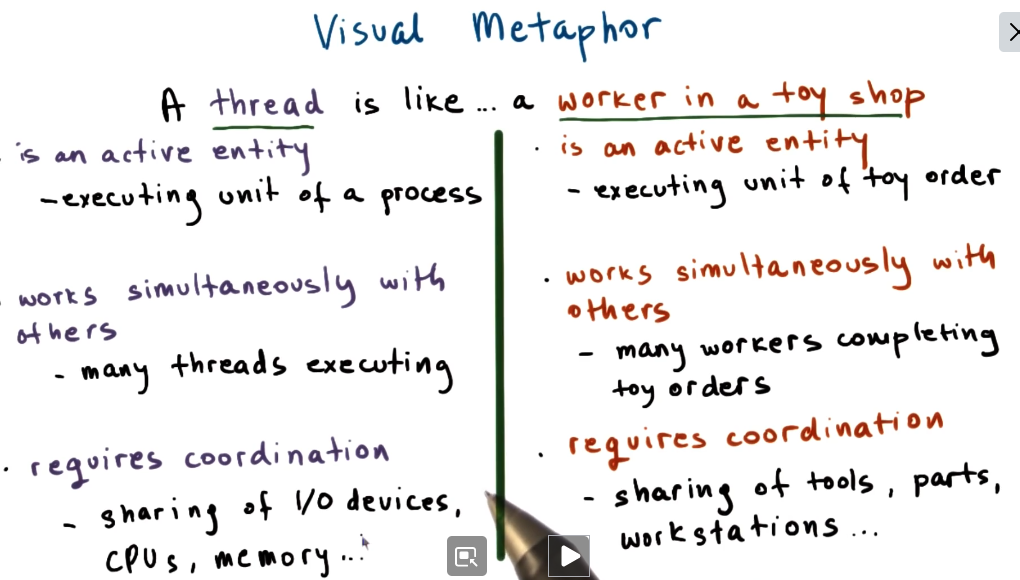 Visual Metaphor
A thread is like... a worker in a toy shop
· is an active entity
- executing unit of a process
· works simultaneously with
others
- many threads executing
· requires coordination
- sharing of I/O devices,
CPUs, memory...
· is an active entity
- executing unit of toy order
· works simultaneously with
others
- many workers completing
toy orders
· requires coordination
- sharing of tools, parts,
workstations...